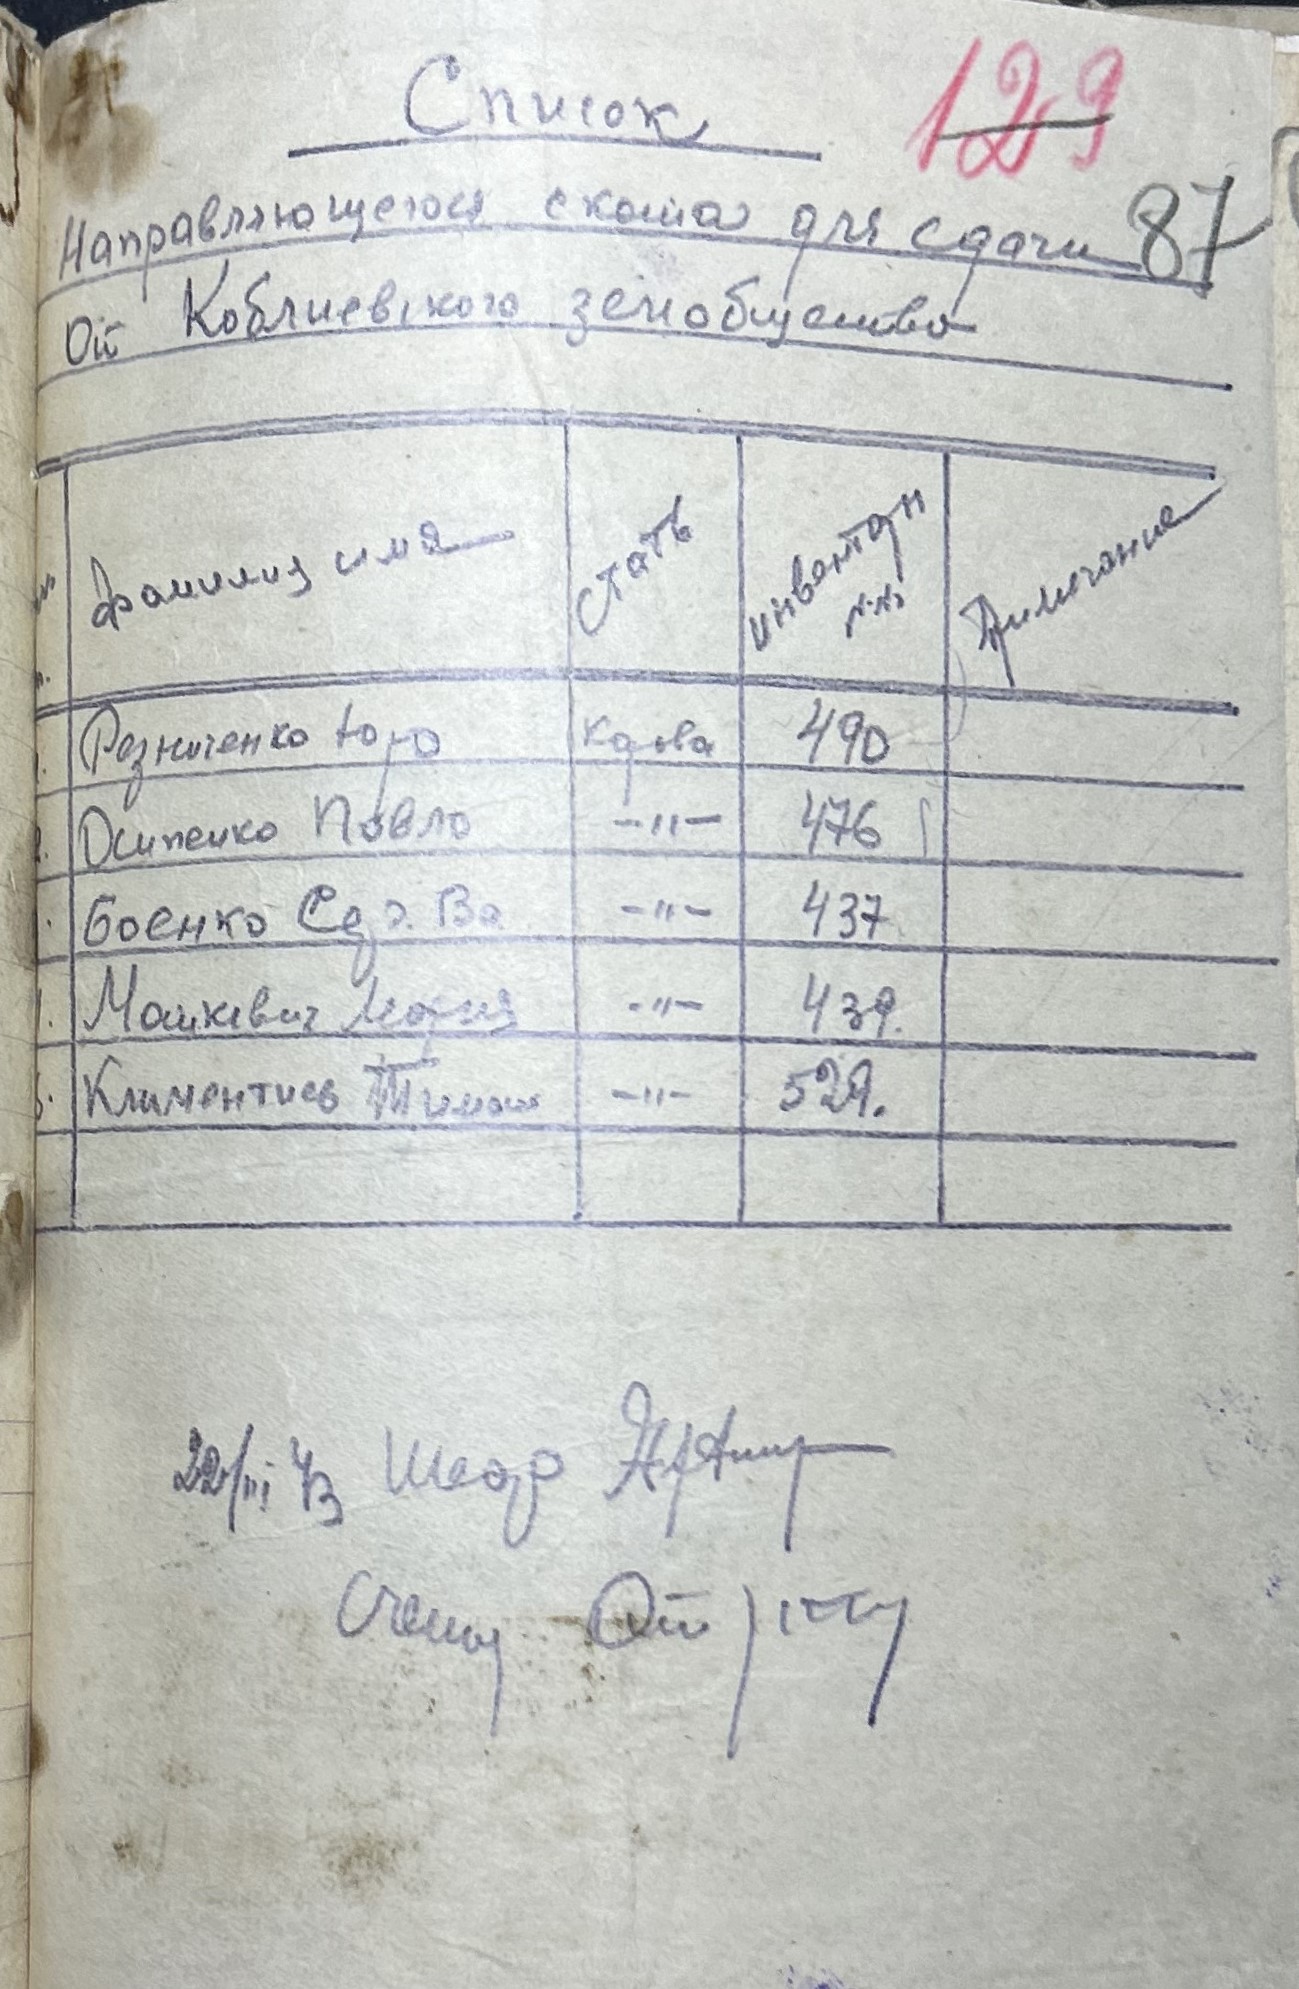 Список
129
Направляющегося скота для сдачи
87
От Коблиевского земобщество
Фамилия имя Стать инвентарн Примечание
№.№
1. Резниченко Юро Корова 490
2. Осипенко Павло -"- 476
Боенко -"- 437
4. Машкевич Мария -"- 439.
5. Климентиев Тимош -"- 529.
22/III 43
Счетов